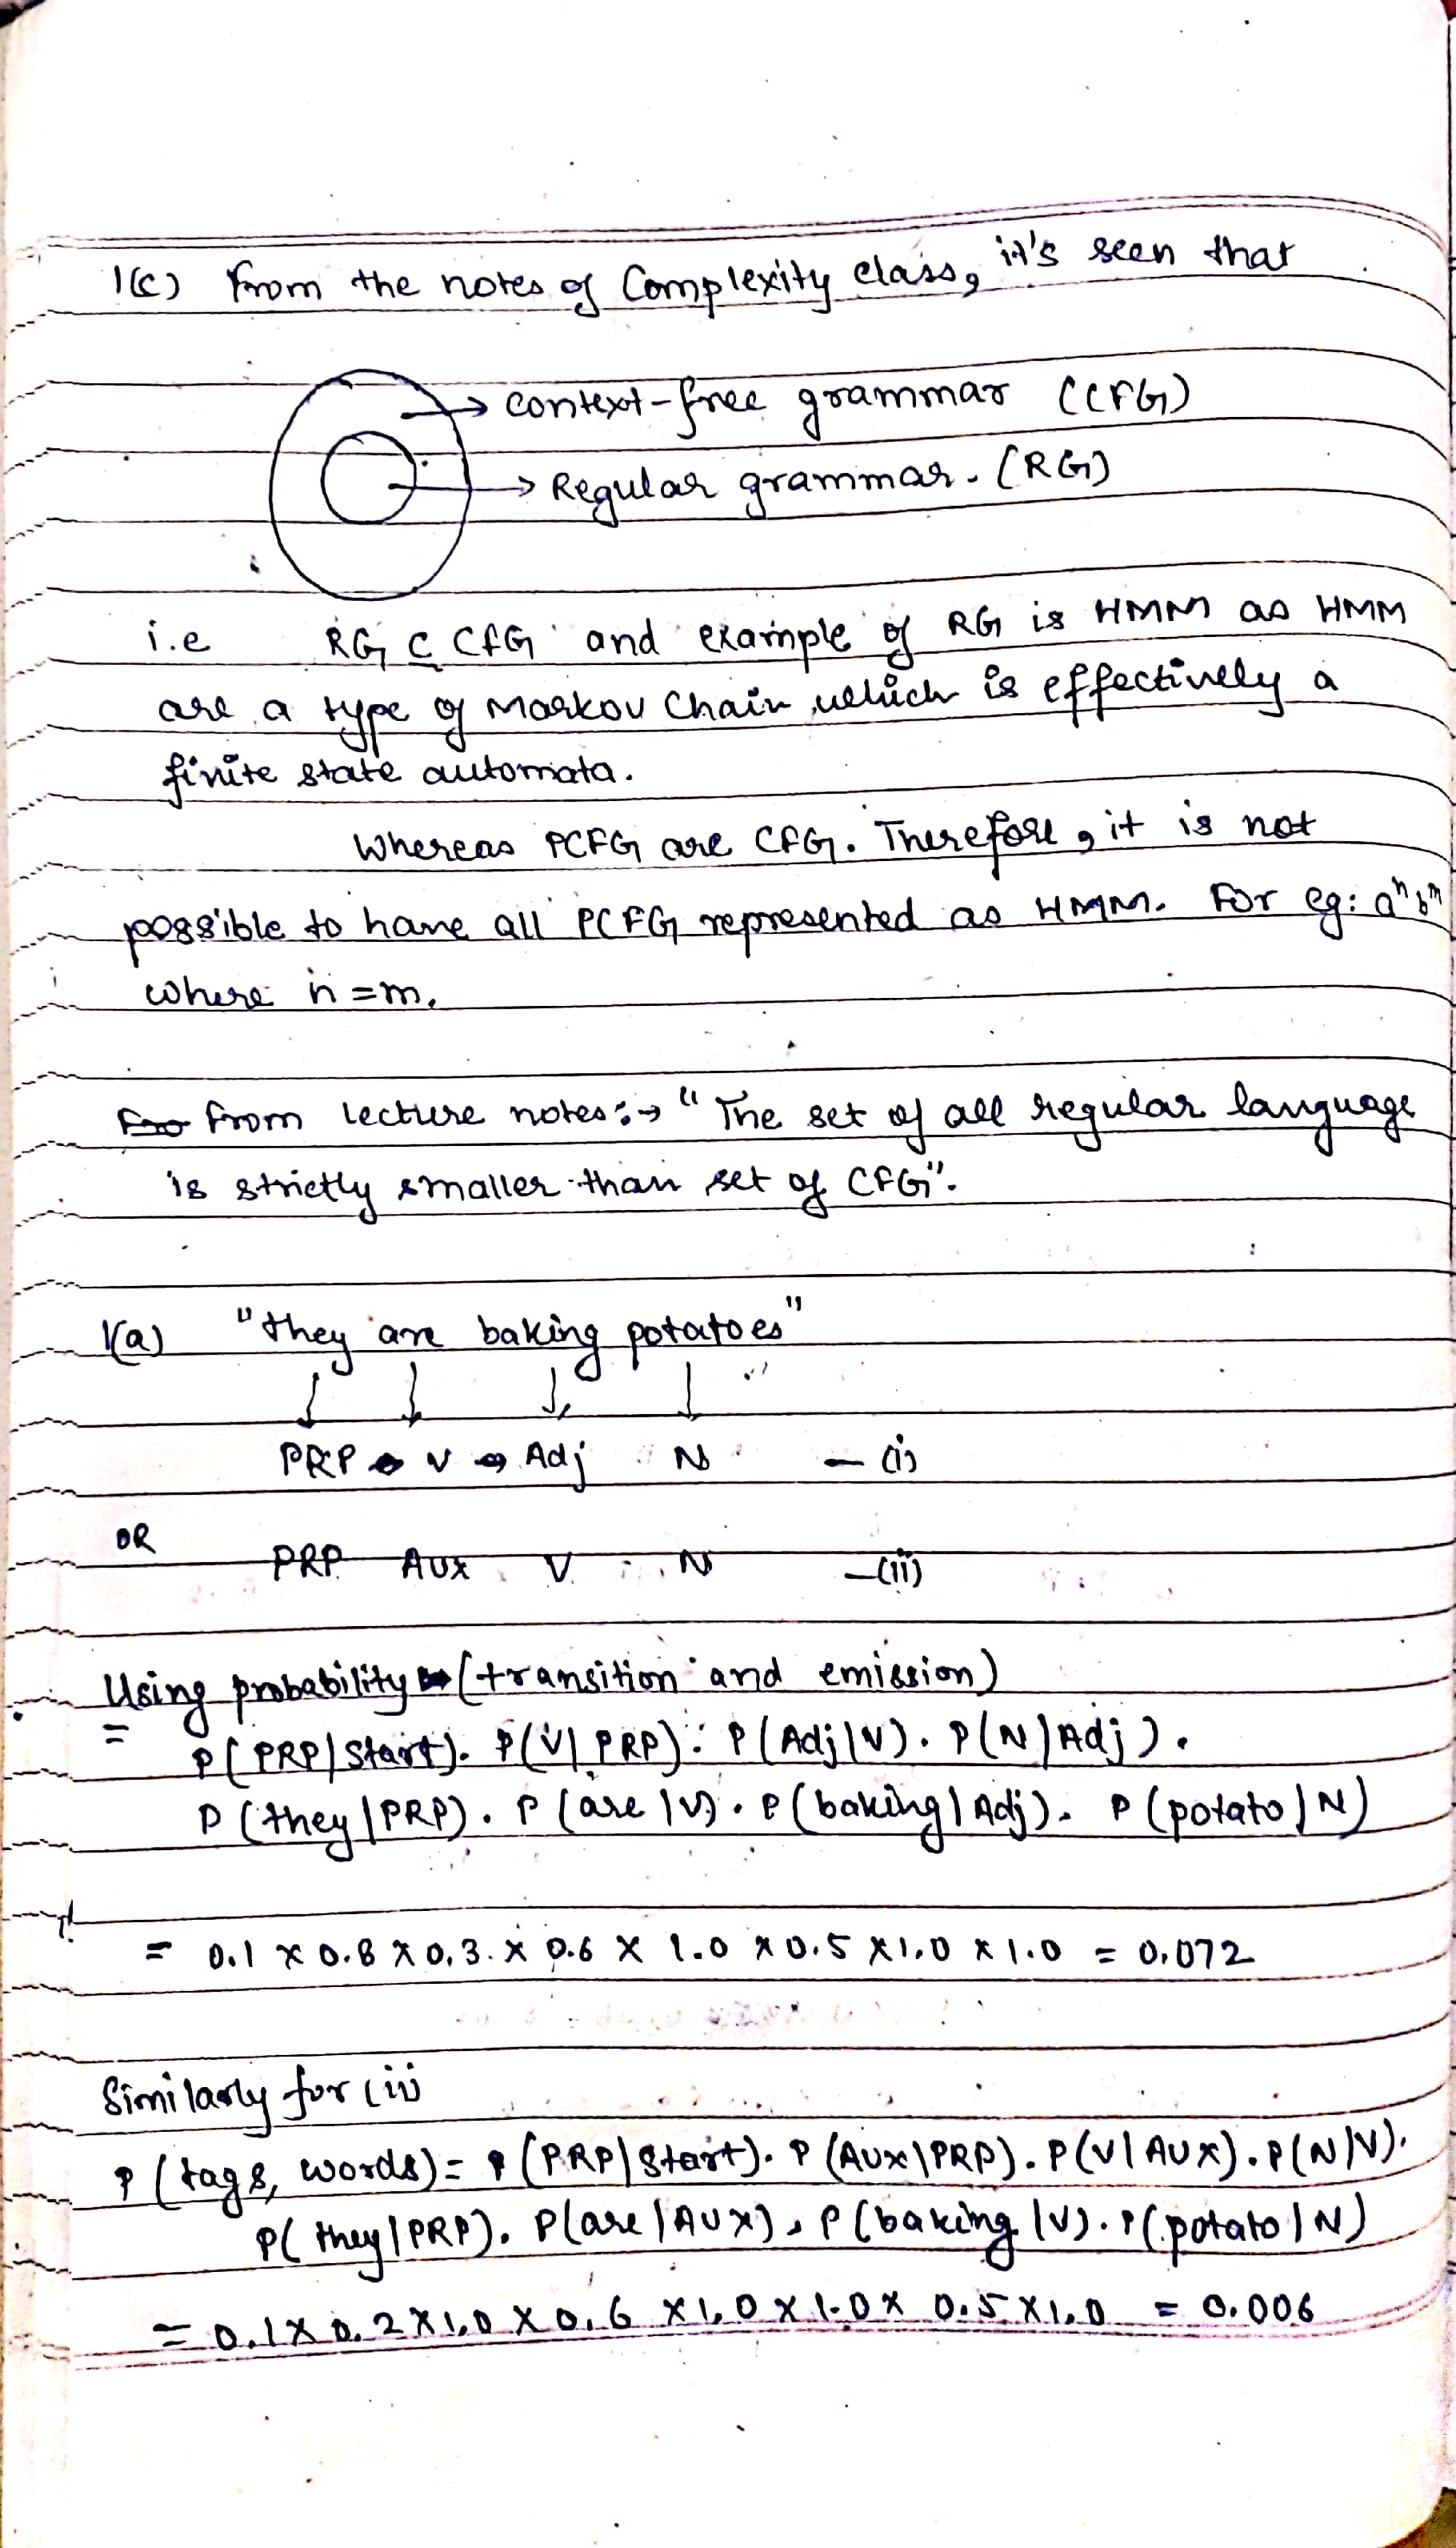 1(c) From the notes of Complexity class, it's seen that
→ context-free grammar (CFG)
→ Regular grammar. (RG)
i.e RG ⊆ CFG and example of RG is HMM as HMM
are a type of Markov Chain which is effectively a
finite state automata.
Whereas PCFG are CFG. Therefore, it is not
possible to have all PCFG represented as HMM. For eg: aⁿbᵐ
where n=m.
From lecture notes:→ "The set of all regular language
is strictly smaller than set of CFG".
1(a) "they are baking potatoes"
↓ ↓ ↓ ↓
PRP V Adj N — (i)
OR
PRP AUX V N —(ii)
Using probability (transition and emission)
= P(PRP|Start). P(V|PRP). P(Adj|V). P(N|Adj).
P(they|PRP). P(are|V). P(baking|Adj). P(potato|N)
= 0.1 x 0.8 x 0.3 x 0.6 x 1.0 x 0.5 x 1.0 x 1.0 = 0.072
Similarly for (ii)
P(tags, words) = P(PRP|Start). P(AUX|PRP). P(V|AUX). P(N|V).
P(they|PRP). P(are|AUX). P(baking|V). P(potato|N)
= 0.1 x 0.2 x 1.0 x 0.6 x 1.0 x 1.0 x 0.5 x 1.0 = 0.006